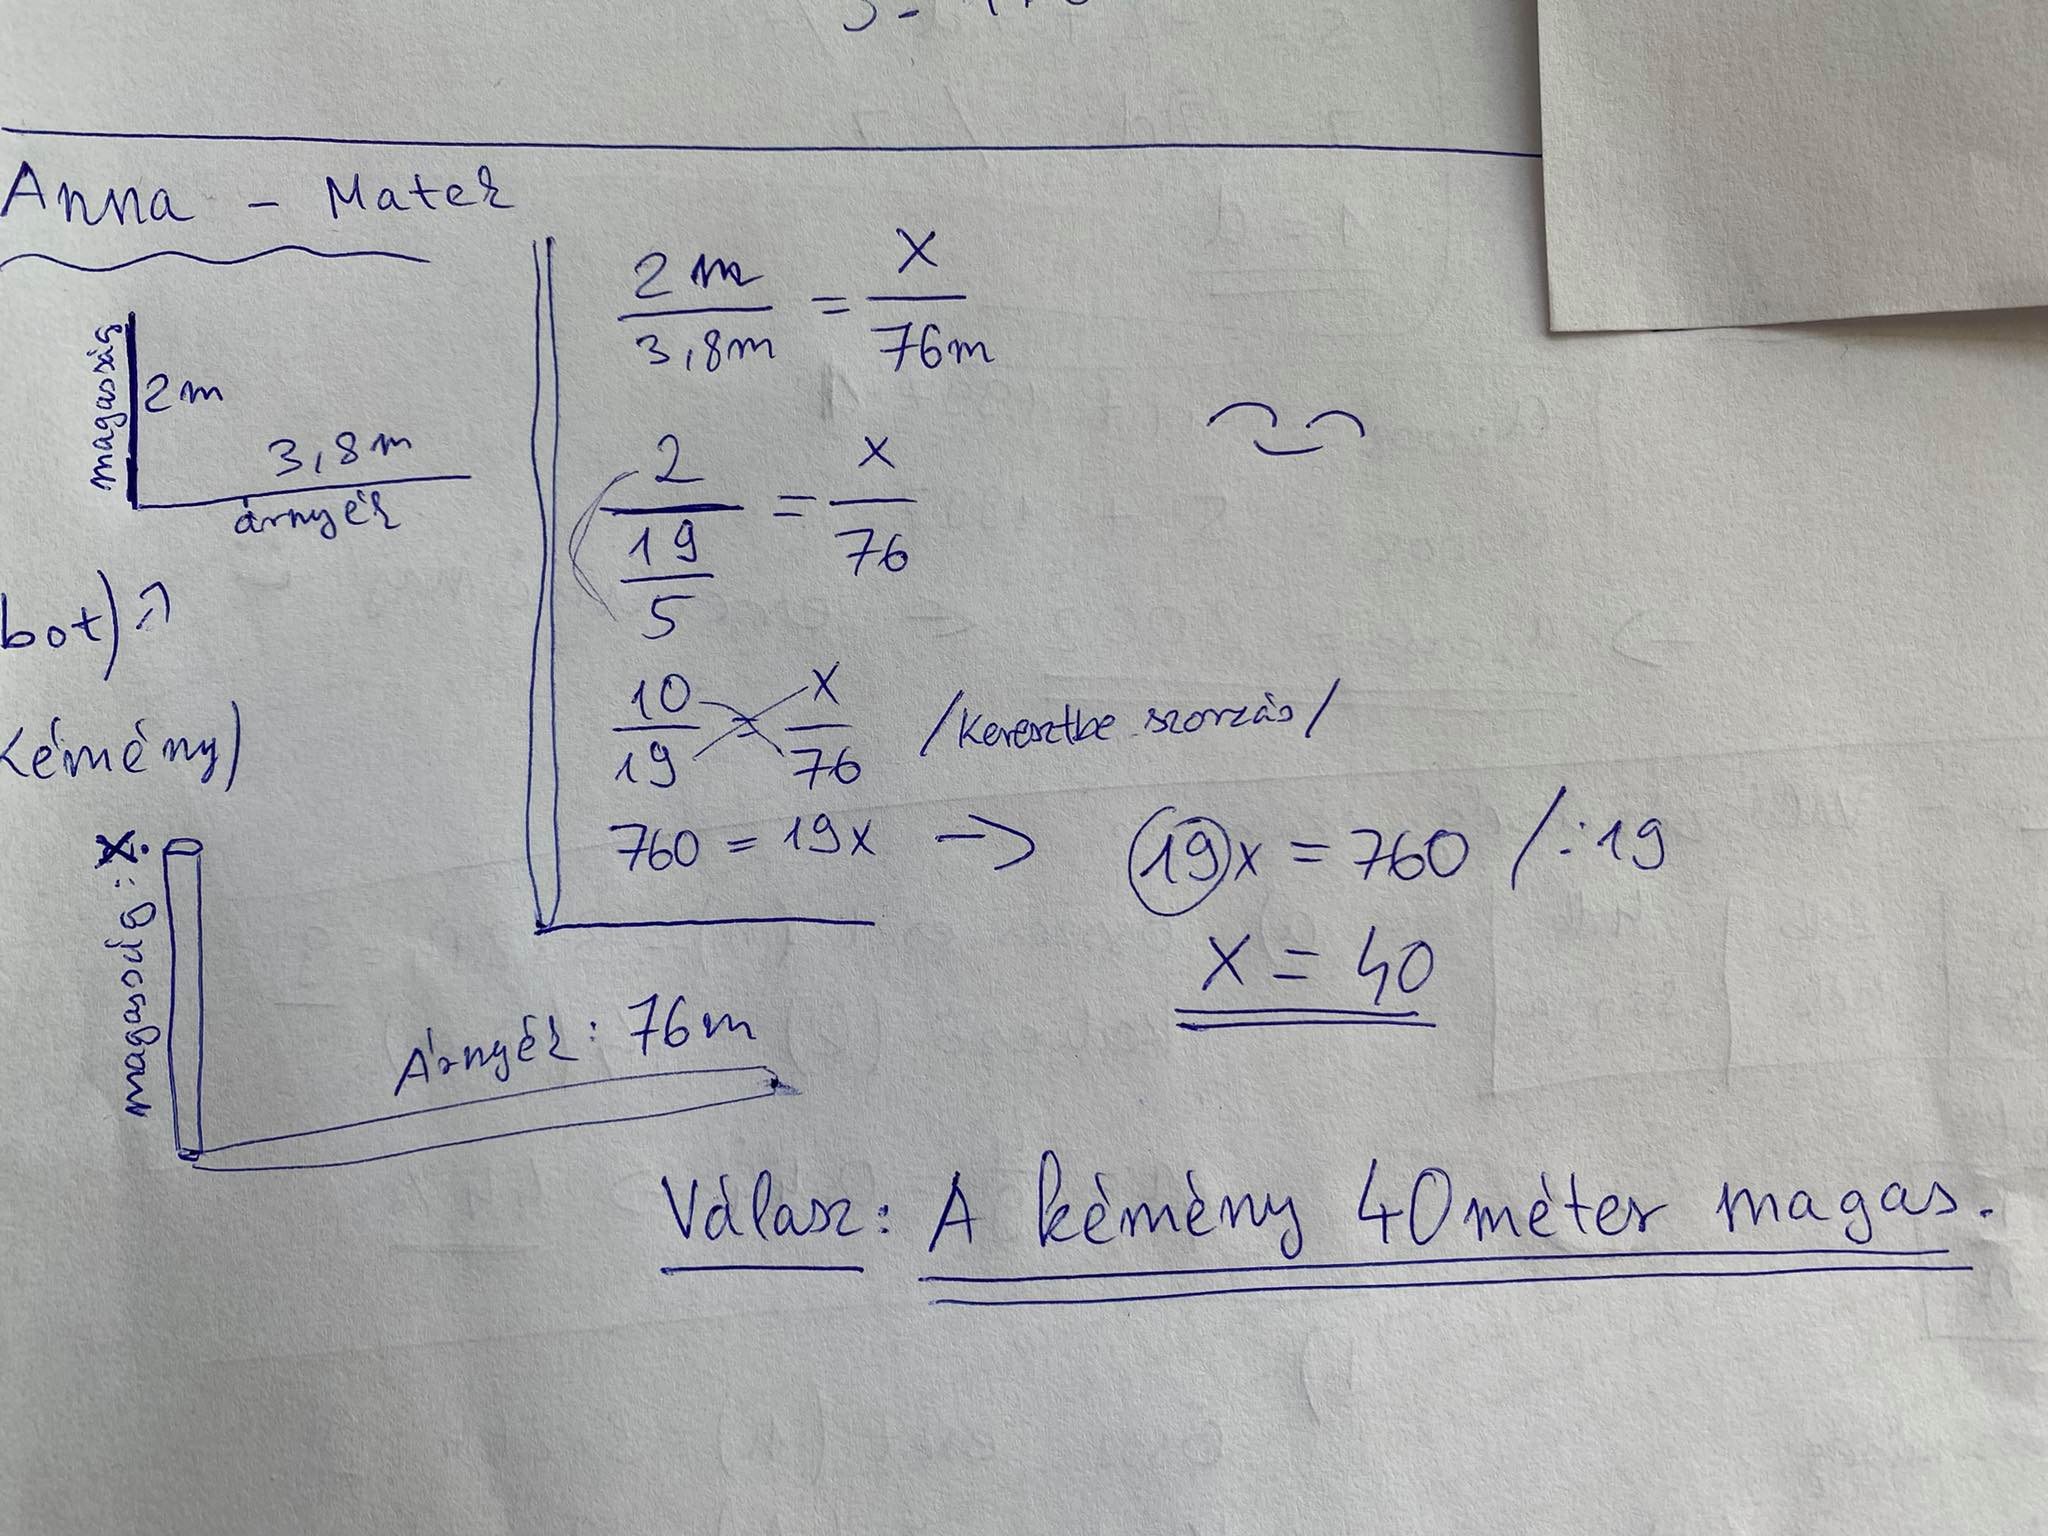 Anna - Matek
magasság
2m
3,8m
árnyék
bot)
kémény)
magasság: x
Árnyék: 76m
2m/3,8m = x/76m
2/(19/5) = x/76
10/19 = x/76 /keresztbe szorzás/
760 = 19x → 19x = 760 /:19
x = 40
Válasz: A kémény 40méter magas.